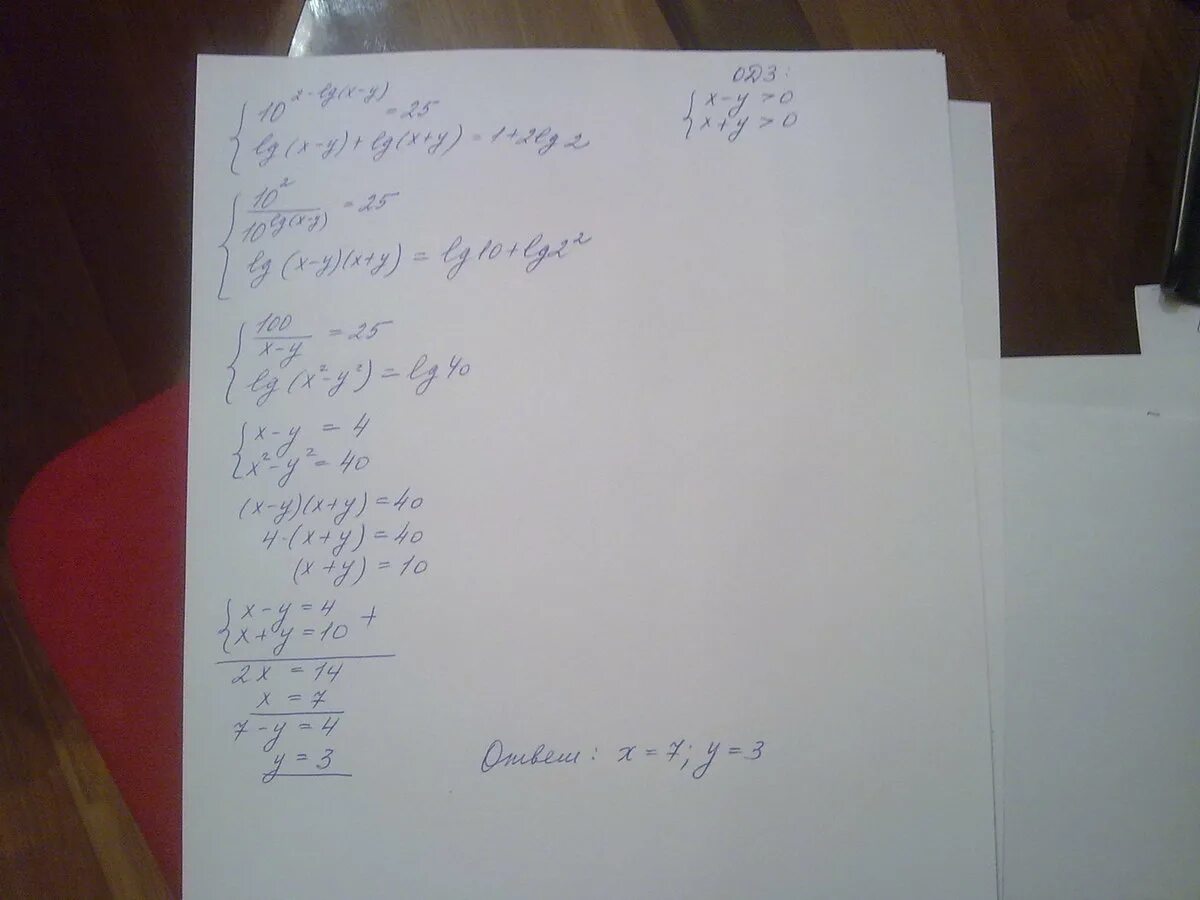 10^{2-lg(x-y)} = 25
lg(x-y)+lg(x+y)=1+2lg2
ОДЗ:
x-y>0
x+y>0
10^2/10^{lg(x-y)} = 25
lg(x-y)(x+y) = lg10+lg2^2
100/(x-y) = 25
lg(x^2-y^2) = lg40
x-y = 4
x^2-y^2 = 40
(x-y)(x+y) = 40
4·(x+y) = 40
(x+y) = 10
x-y = 4
x+y = 10 +
2x = 14
x = 7
7-y = 4
y = 3
Ответ: x=7; y=3